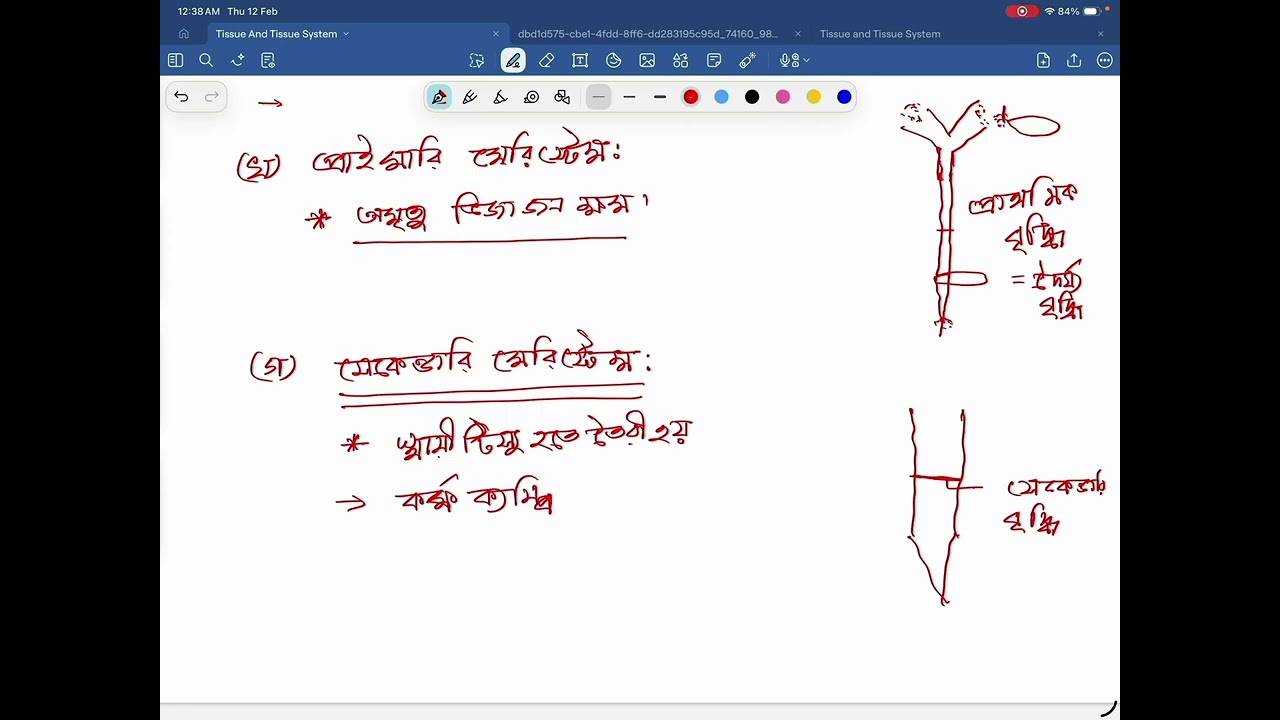 12:38 AM Thu 12 Feb
84%
Tissue And Tissue System
dbd1d575-cbe1-4fdd-8ff6-dd283195c95d_74160_98...
Tissue and Tissue System
(খ) প্রাইমারি মেরিস্টেম:
* অমৃত্যু বিভাজনক্ষম।
প্রাথমিক
বৃদ্ধি
= দৈর্ঘ্য
বৃদ্ধি
(গ) সেকেন্ডারি মেরিস্টেম:
* স্থায়ী টিস্যু হতে তৈরী হয়
→ কর্ক ক্যাম্বি
সেকেন্ডারি
বৃদ্ধি